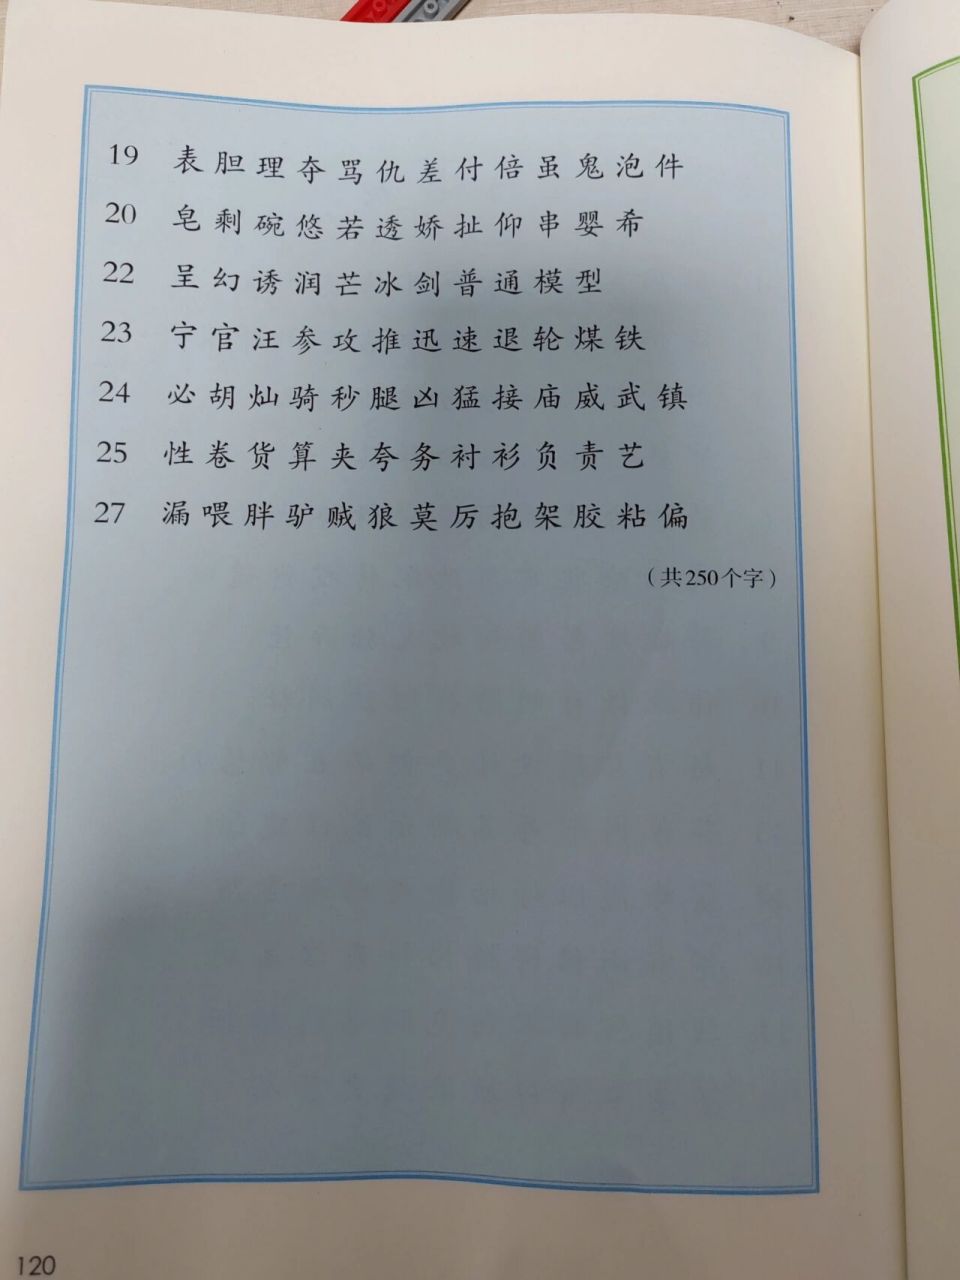 19 表胆理夺骂仇差付倍虽鬼泡件
20 皂剩碗悠若透娇扯仰串婴希
22 呈幻诱润芒冰剑普通模型
23 宁官汪参攻推迅速退轮煤铁
24 必胡灿骑秒腿凶猛接庙威武镇
25 性卷货算夹夸务衬衫负责艺
27 漏喂胖驴贼狼莫厉抱架胶粘偏
（共250个字）
120